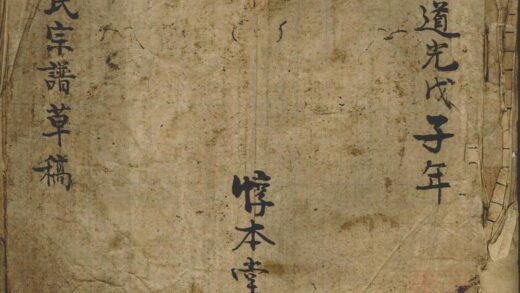 道光戊子年
惇本堂
氏宗譜草稿